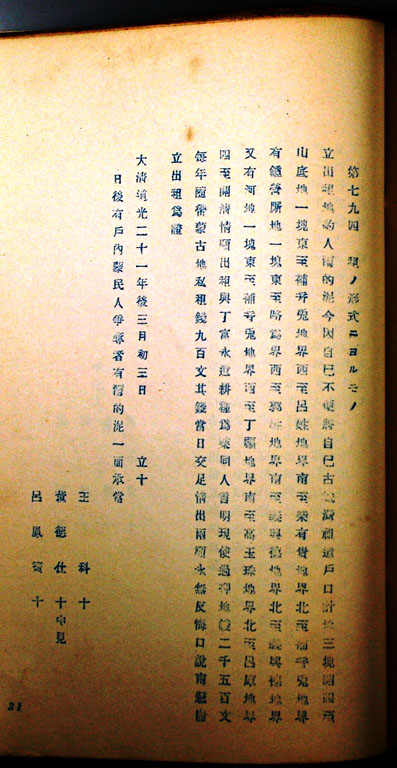 第七九四 租ノ形式ニヨルモノ
立出租地約人爾的泥今因自己不便將自己古 遺祖遺戶口計地三塊開四至
山底地一塊東至補吞兎地界西至呂姓地界南至柴有貴地界北至補吞兎地界
有 所地一塊東至路爲界西至 姓地界南至義興德地界北至義興德地界
又有河地一塊東至補吞兎地界西至丁 地界南至高玉珠地界北至呂原地界
四至開清情願出租與丁富永遠耕種爲業同人言明現使過押地錢二千五百文
每年 蒙古地私租錢九百文其錢當日交足情出兩願永無反悔口說
立出租爲證
大清道光二十一年後三月初三日 立十
日後有戶內蒙民人爭奪者有爾的泥一面承當
王 科十
黃德仕十中見
呂鳳 十
31